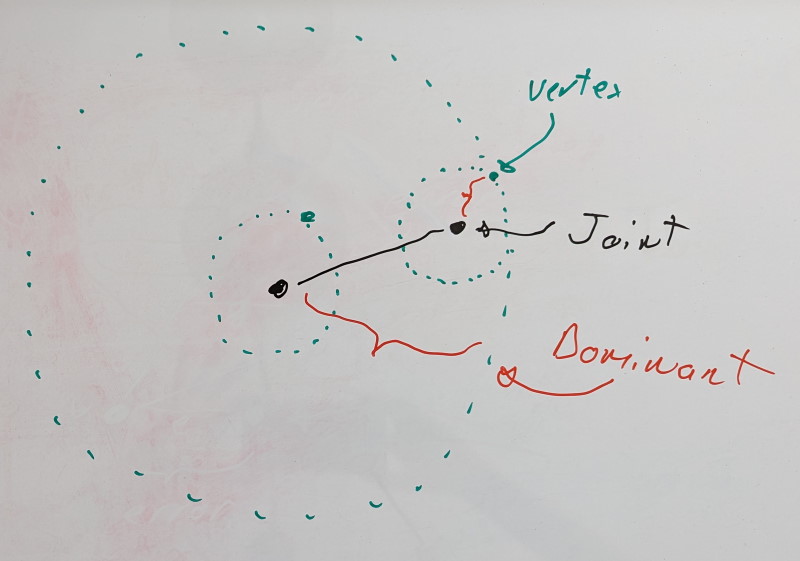 vertex
Joint
Dominant